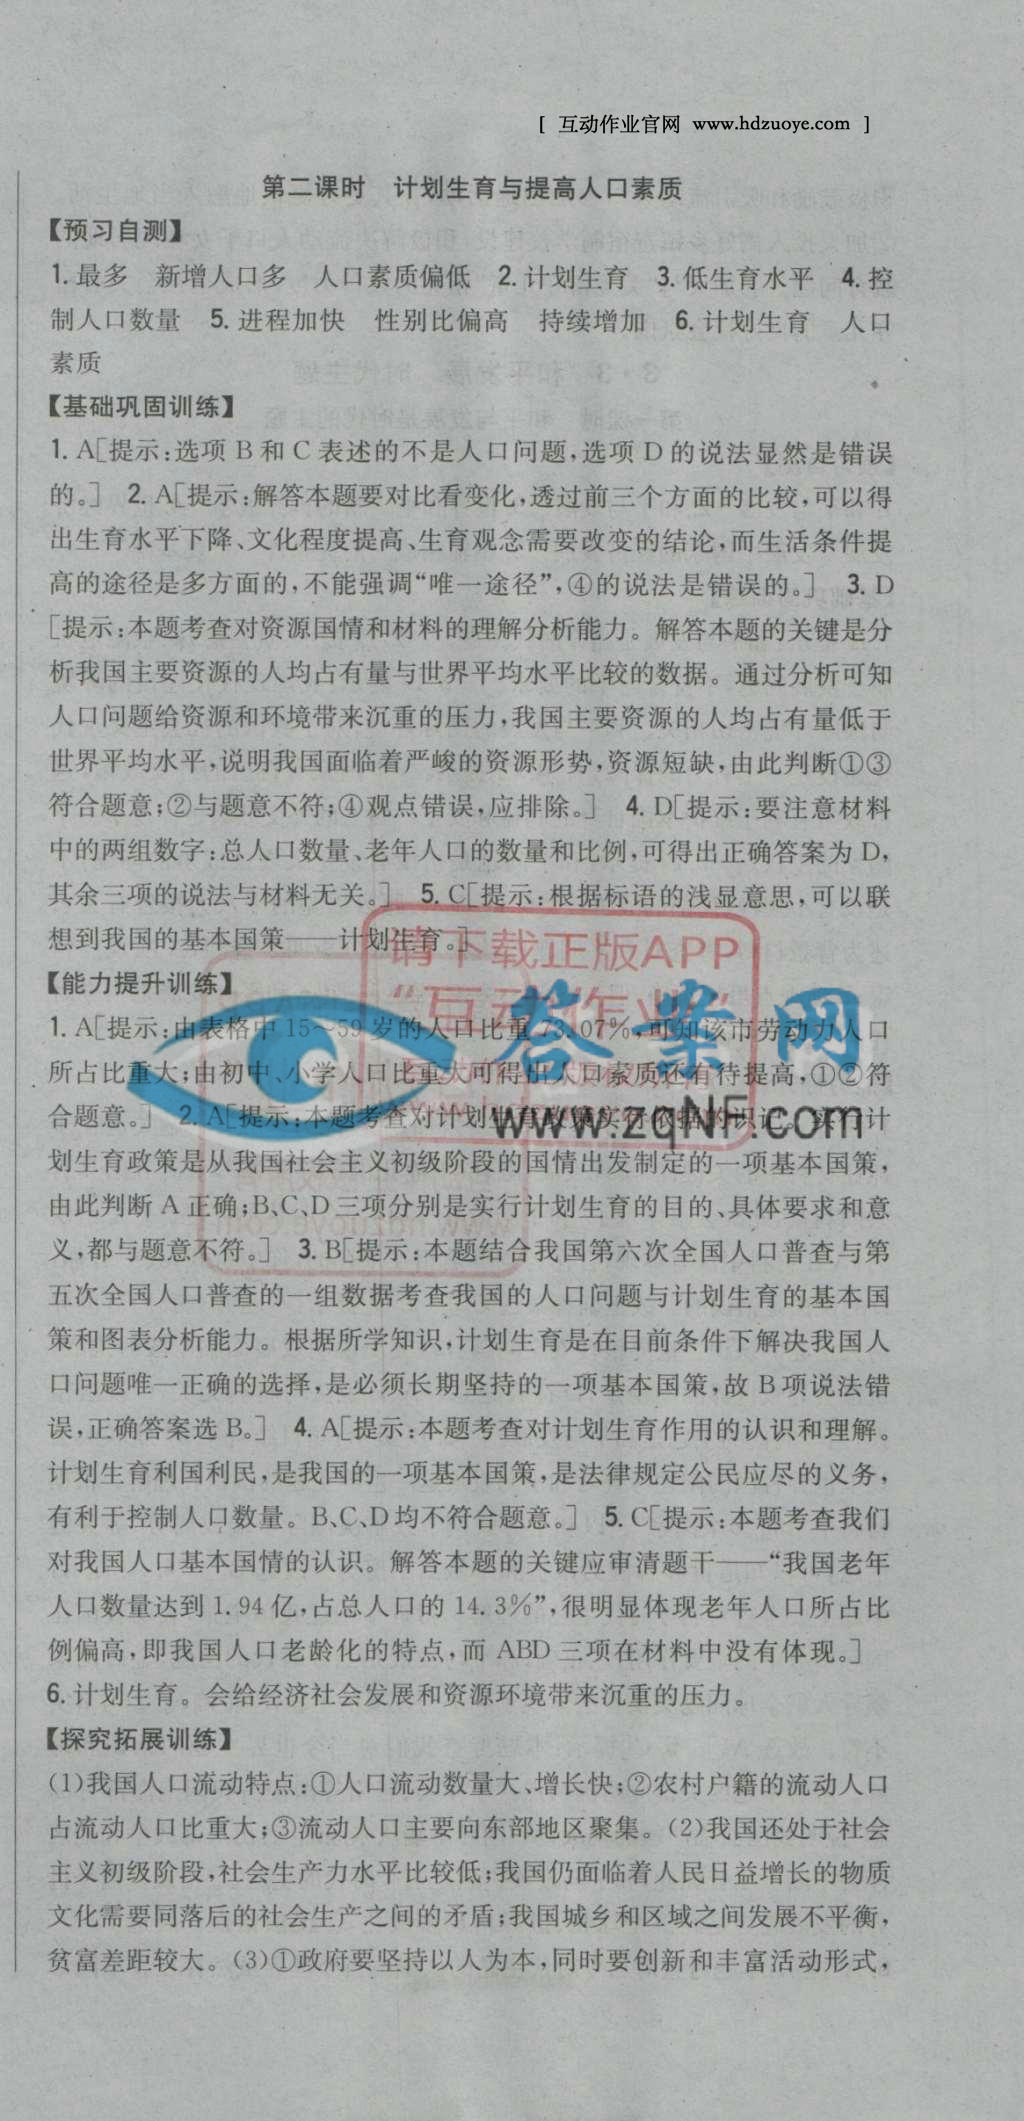 [ 互动作业官网 www.hdzuoye.com ]
第二课时 计划生育与提高人口素质
【预习自测】
1. 最多 新增人口多 人口素质偏低 2. 计划生育 3. 低生育水平 4. 控
制人口数量 5. 进程加快 性别比偏高 持续增加 6. 计划生育 人口
素质
【基础巩固训练】
1. A[提示:选项 B 和 C 表述的不是人口问题,选项 D 的说法显然是错误
的。] 2. A[提示:解答本题要对比看变化,透过前三个方面的比较,可以得
出生育水平下降、文化程度提高、生育观念需要改变的结论,而生活条件提
高的途径是多方面的,不能强调“唯一途径”,④的说法是错误的。] 3. D
[提示:本题考查对资源国情和材料的理解分析能力。解答本题的关键是分
析我国主要资源的人均占有量与世界平均水平比较的数据。通过分析可知
人口问题给资源和环境带来沉重的压力,我国主要资源的人均占有量低于
世界平均水平,说明我国面临着严峻的资源形势,资源短缺,由此判断①③
符合题意;②与题意不符;④观点错误,应排除。] 4. D[提示:要注意材料
中的两组数字:总人口数量、老年人口的数量和比例,可得出正确答案为 D,
其余三项的说法与材料无关。] 5. C[提示:根据标语的浅显意思,可以联
想到我国的基本国策——计划生育。]
请下载正版APP
“互动作业”
答案网
www.zqNF.com
【能力提升训练】
1. A[提示:由表格中 15～59 岁的人口比重 73.07%,可知该市劳动力人口
所占比重大;由初中、小学人口比重大可得出人口素质还有待提高,①②符
合题意。] 2. A[提示:本题考查对计划生育政策实行依据的识记。实行计
划生育政策是从我国社会主义初级阶段的国情出发制定的一项基本国策,
由此判断 A 正确;B、C、D 三项分别是实行计划生育的目的、具体要求和意
义,都与题意不符。] 3. B[提示:本题结合我国第六次全国人口普查与第
五次全国人口普查的一组数据考查我国的人口问题与计划生育的基本国
策和图表分析能力。根据所学知识,计划生育是在目前条件下解决我国人
口问题唯一正确的选择,是必须长期坚持的一项基本国策,故 B 项说法错
误,正确答案选 B。] 4. A[提示:本题考查对计划生育作用的认识和理解。
计划生育利国利民,是我国的一项基本国策,是法律规定公民应尽的义务,
有利于控制人口数量。B、C、D 均不符合题意。] 5. C[提示:本题考查我们
对我国人口基本国情的认识。解答本题的关键应审清题干——“我国老年
人口数量达到 1.94 亿,占总人口的 14.3%”,很明显体现老年人口所占比
例偏高,即我国人口老龄化的特点,而 ABD 三项在材料中没有体现。]
6. 计划生育。会给经济社会发展和资源环境带来沉重的压力。
【探究拓展训练】
(1)我国人口流动特点:①人口流动数量大、增长快;②农村户籍的流动人口
占流动人口比重大;③流动人口主要向东部地区聚集。(2)我国还处于社会
主义初级阶段,社会生产力水平比较低;我国仍面临着人民日益增长的物质
文化需要同落后的社会生产之间的矛盾;我国城乡和区域之间发展不平衡,
贫富差距较大。(3)①政府要坚持以人为本,同时要创新和丰富活动形式,